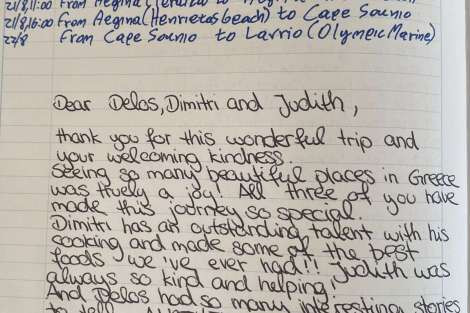 21/8, 11:00 from Aegina
21/8, 16:00 from Aegina (Henrietas beach) to Cape Sounio
22/8 from Cape Sounio to Lavrio (Olympic Marine)
Dear Delos, Dimitri and Judith,
thank you for this wonderful trip and
your welcoming kindness.
Seeing so many beautiful places in Greece
was truely a joy! All three of you have
made this journey so special.
Dimitri has an outstanding talent with his
cooking and made some of the best
foods we've ever had!! Judith was
always so kind and helping!
And Delos had so many interesting stories
to tell.